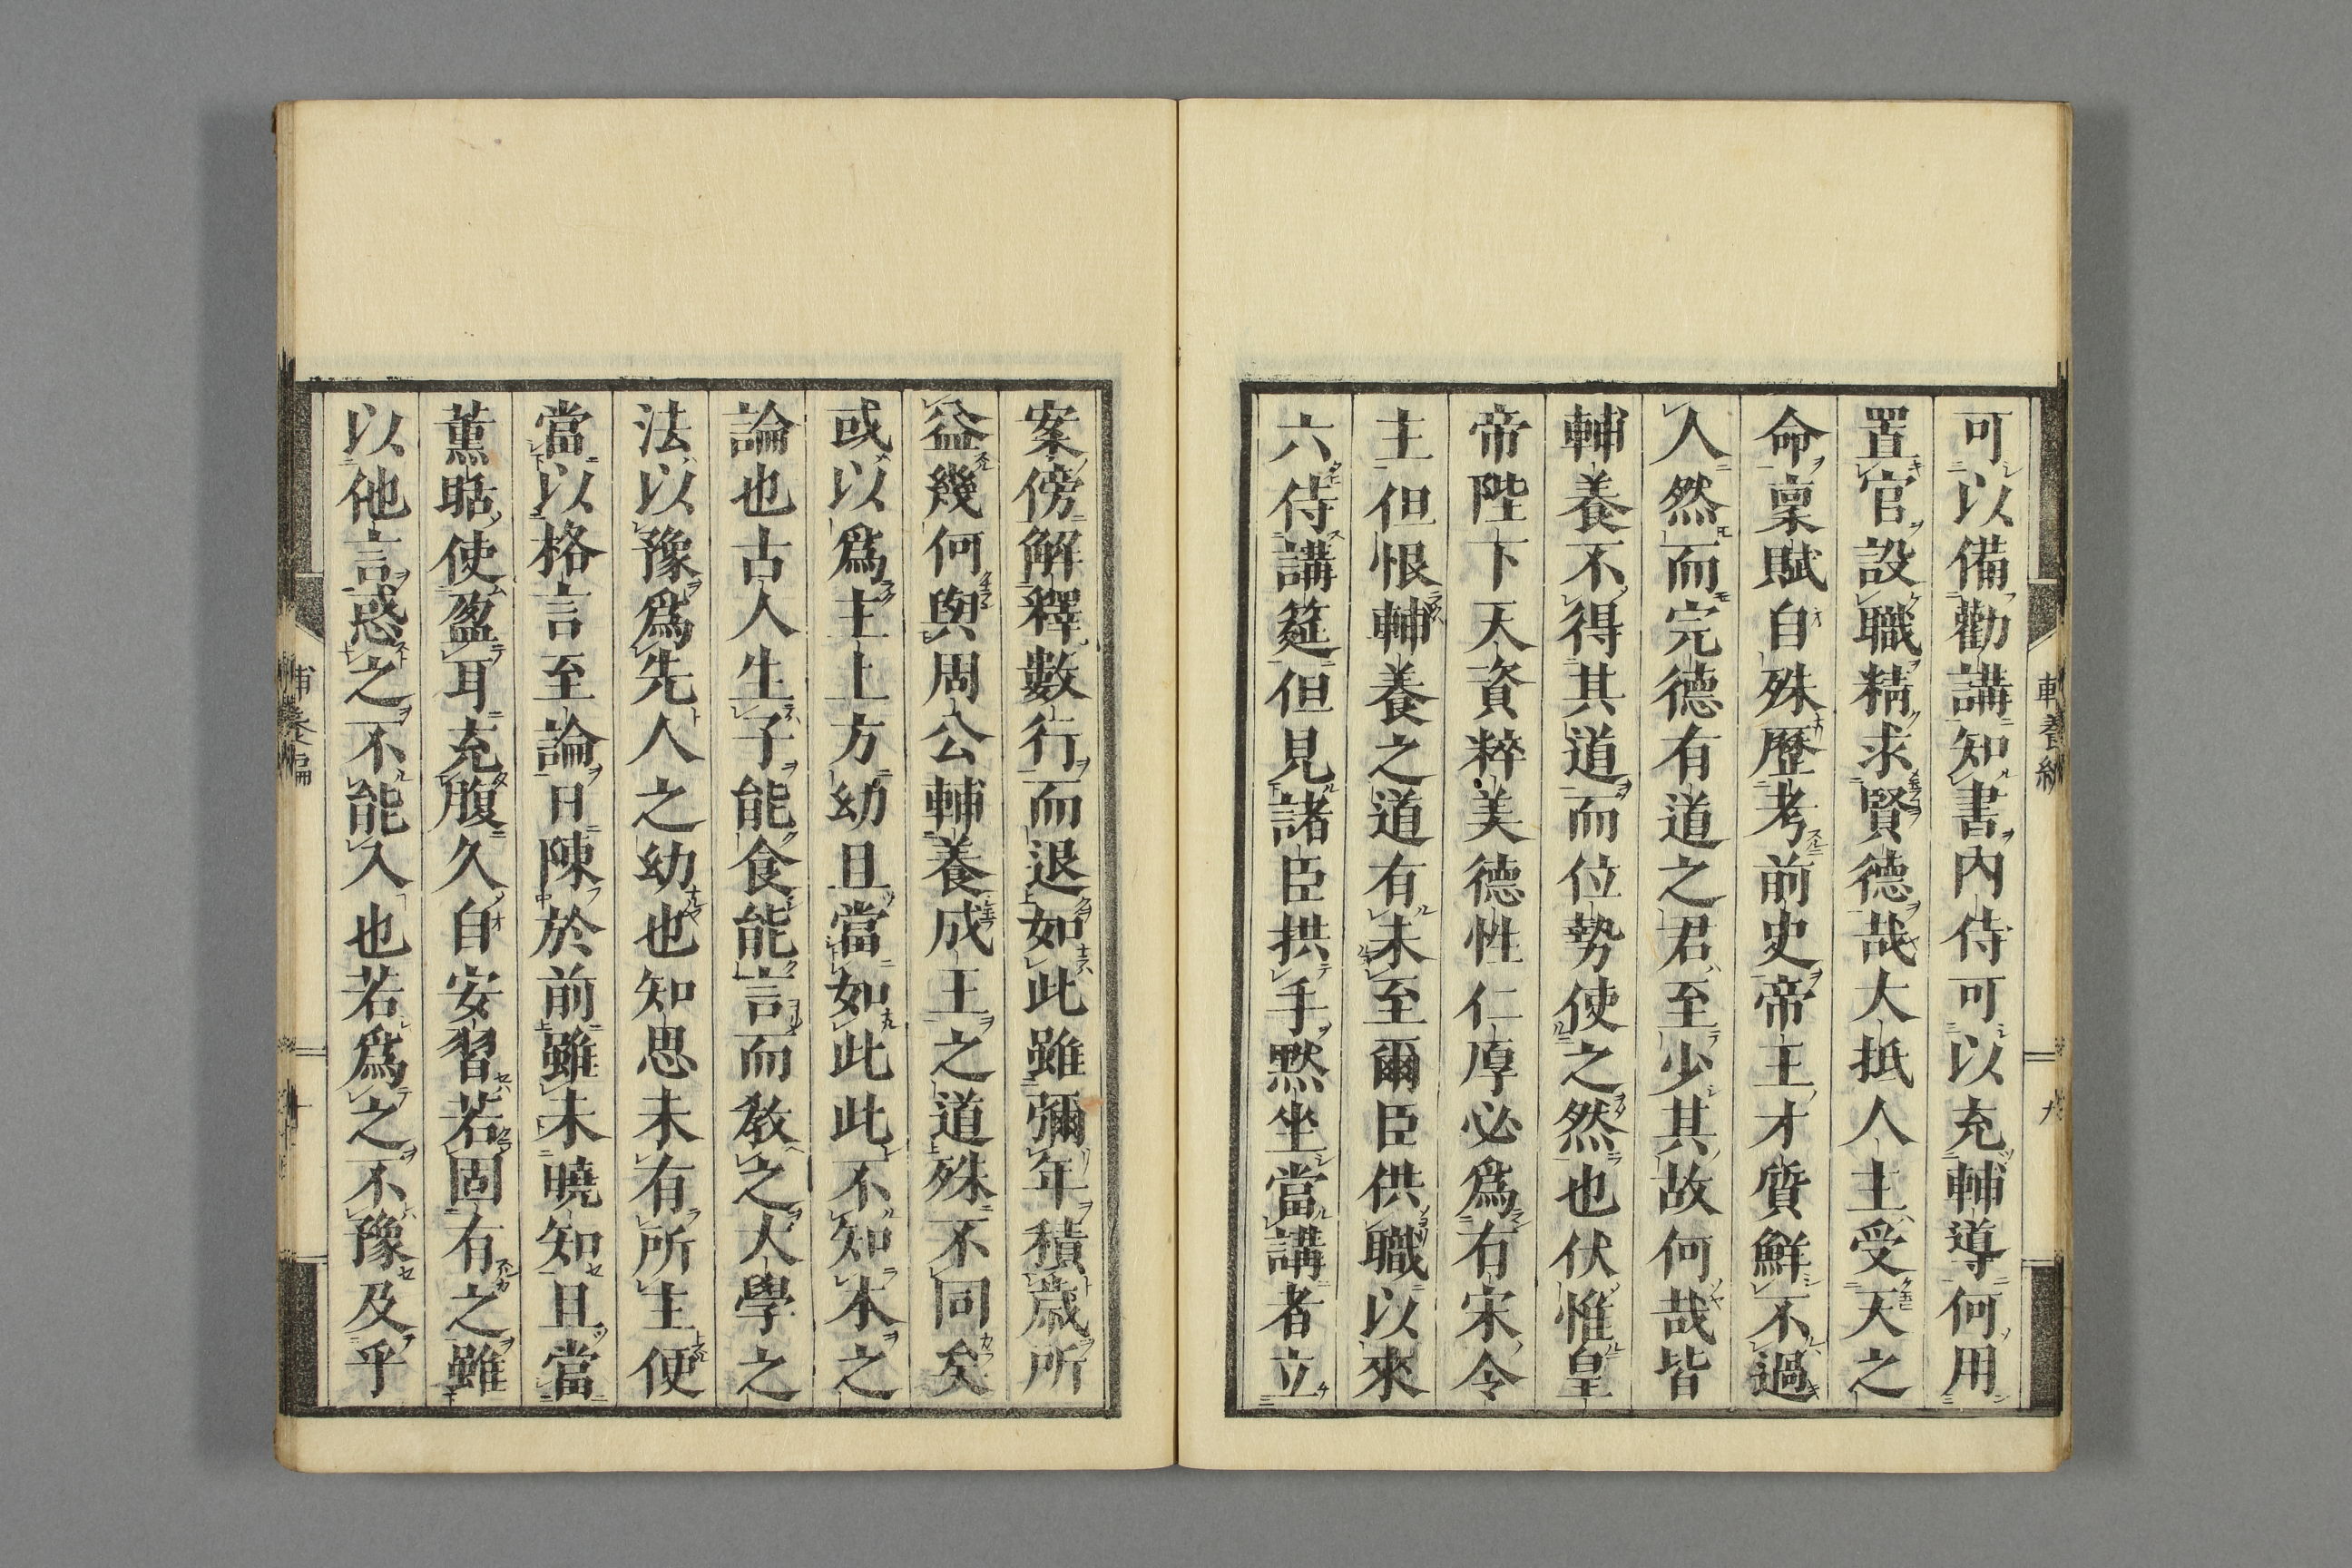 可以備勸講知書內侍可以充輔導何用
置官設職精求賢德哉大抵人主受天之
命稟賦自殊歷考前史帝王才質鮮不過
人然而完德有道之君至少其故何哉皆
輔養不得其道而位勢使之然也伏惟皇
帝陛下天資粹美德性仁厚必爲有宋令
主但恨輔養之道有未至爾臣供職以來
六侍講筵但見諸臣拱手默坐當講者立
案傍解釋數行而退如此雖彌年積歲所
益幾何與周公輔養成王之道殊不同矣
或以爲主上方幼且當如此此不知本之
論也古人生子能食能言而教之大學之
法以豫爲先人之幼也知思未有所主便
當以格言至論日陳於前雖未曉知且當
薰聒使盈耳充腹久自安習若固有之雖
以他言惑之不能入也若爲之不豫及乎